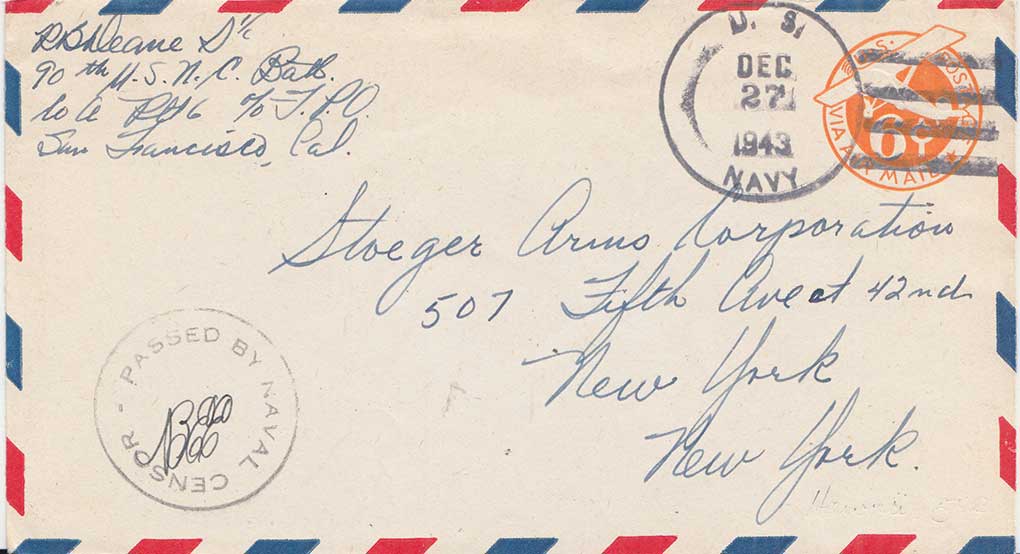 R B Deane S 1/c
90th U.S.N.C. Batt.
Co A Plt 6 c/o F.P.O.
San Francisco, Cal.
U. S.
DEC
27
1943
NAVY
U.S. POSTAGE
6¢
VIA AIR MAIL
Stoeger Arms Corporation
507 Fifth Ave at 42nd
New York
New York.
PASSED BY NAVAL CENSOR